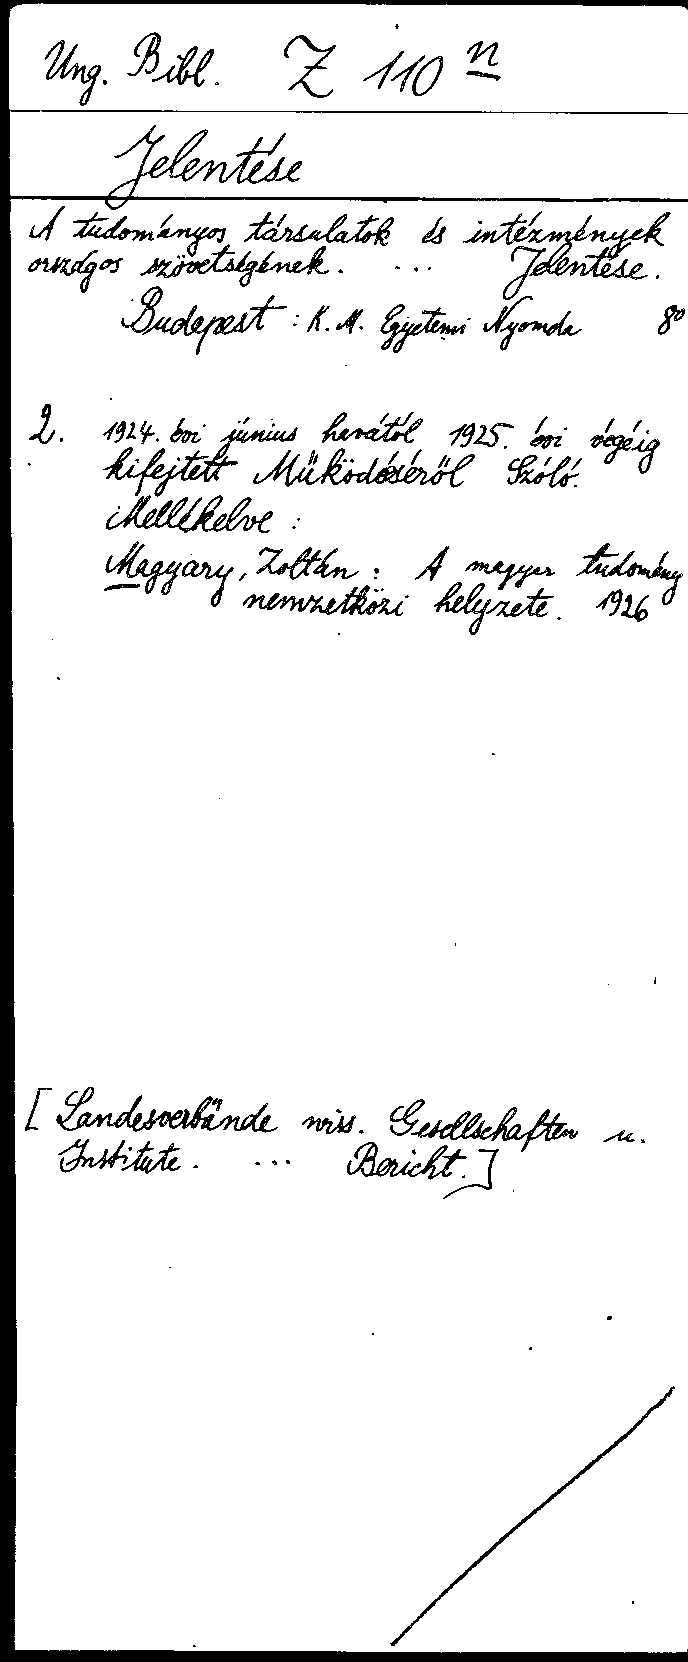 Ung. Bibl. Z 110 n
Jelentése
A tudományos társulatok és intézmények
országos szövetségének. ... Jelentése.
Budapest : K. M. Egyetemi Nyomda 8°
2. 1924. évi június havától 1925. évi végéig
kifejtett Működéséről Szóló.
Mellékelve :
Magyary, Zoltán : A magyar tudomány
nemzetközi helyzete. 1926
[ Landesverbände wiss. Gesellschaften u.
Institute. ... Bericht. ]